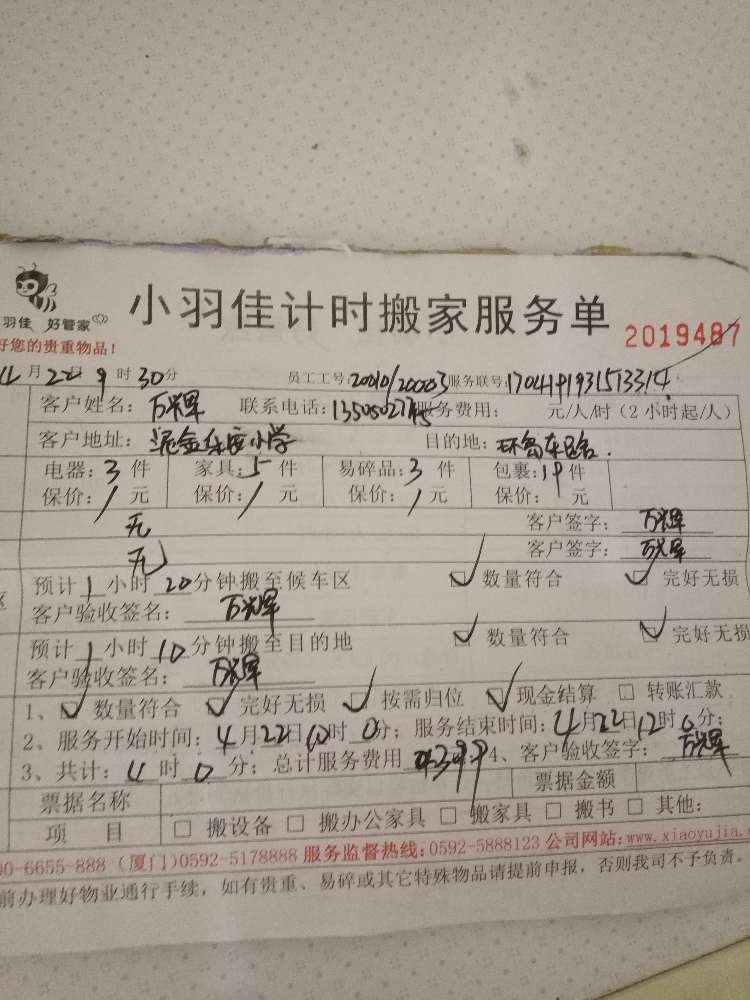 羽佳 好管家
小羽佳计时搬家服务单 2019487
好您的贵重物品！
4月22日9时30分 员工工号：20010/20003 服务联号：1704191931513314
客户姓名：万辉 联系电话： 服务费用： 元/人/时（2小时起/人）
客户地址：小学 目的地：
电器：3件 家具：5件 易碎品：3件 包裹：19件
保价：/元 保价：/元 保价：/元 保价： 元
无 客户签字：万辉
无 客户签字：万辉
区 预计1小时20分钟搬至候车区 ☑数量符合 ☑完好无损
客户验收签名：万辉
预计1小时10分钟搬至目的地 ☑数量符合 ☑完好无损
客户验收签名：万辉
1、☑数量符合 ☑完好无损 ☑按需归位 ☑现金结算 □转账汇款
2、服务开始时间：4月22日10时0分；服务结束时间：4月22日12时0分；
3、共计：4时0分；总计服务费用 4、客户验收签字：万辉
票据名称 票据金额
项 目 □搬设备 □搬办公家具 □搬家具 □搬书 □其他：
00-6655-888（厦门）0592-5178888 服务监督热线：0592-5888123 公司网站：www.xiaoyujia.c
前办理好物业通行手续，如有贵重、易碎或其它特殊物品请提前申报，否则我司不予负责。